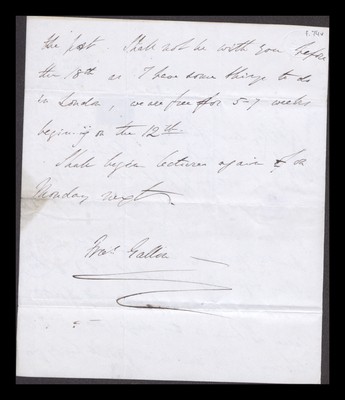 the post. Shall not be with you before
the 18th as I have some things to do
in London, we are free for 5-7 weeks
beginning on the 12th
Shall begin lectures again on
Monday next
Fras. Galton